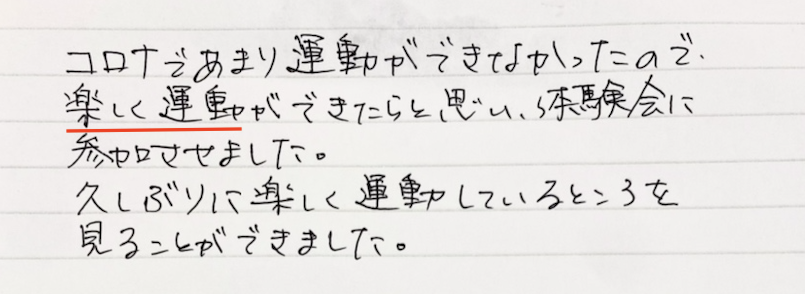 コロナであまり運動ができなかったので、
楽しく運動ができたらと思い、体験会に
参加させました。
久しぶりに楽しく運動しているところを
見ることができました。